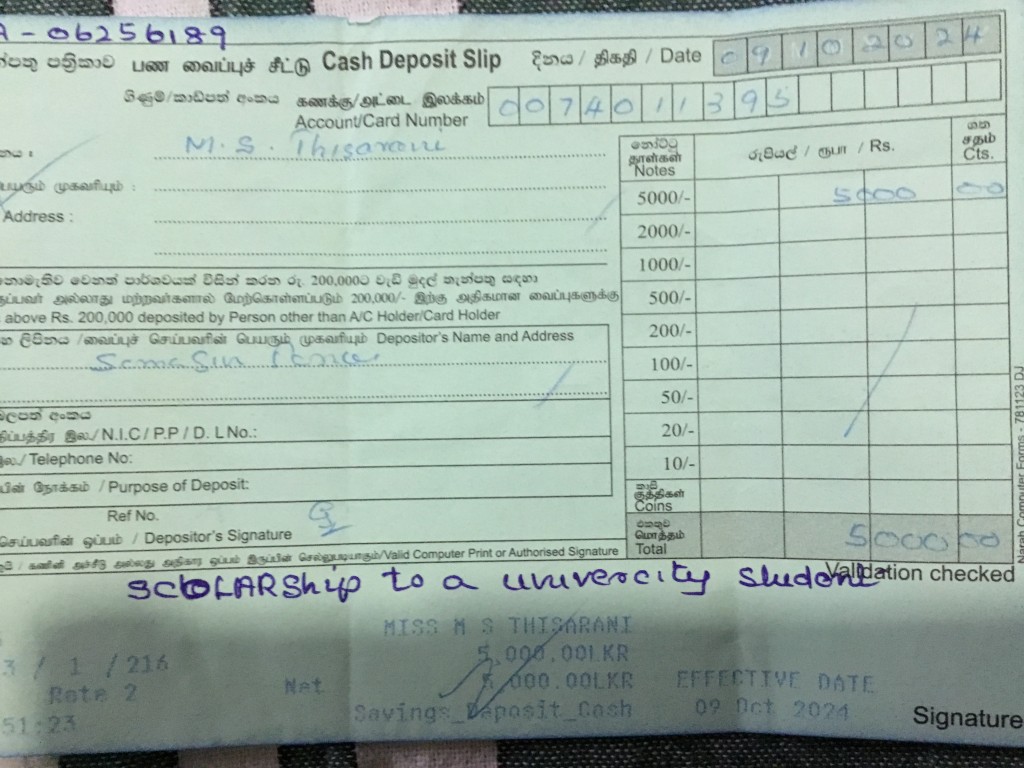 A - 06256189
පතු පත්‍රිකාව பண வைப்புச் சீட்டு Cash Deposit Slip දිනය / திகதி / Date 09102024
ගිණුම්/කාඩ්පත් අංකය கணக்கு/அட்டை இலக்கம் Account/Card Number 0074011395
M. S. Thisarani
பெயரும் முகவரியும் :
Address :
නෝට්ටු தாள்கள் Notes රුපියල් / ரூபா / Rs. ශත சதம் Cts.
5000/- 5000 00
2000/-
1000/-
500/-
200/-
100/-
50/-
20/-
10/-
කාසි குத்திகள் Coins
එකතුව மொத்தம் Total 5000 00
වෙනත් පාර්ශවයක් විසින් කරන රු. 200,000ට වැඩි මුදල් තැන්පතු සඳහා
அல்லது மற்றவர்களால் மேற்கொள்ளப்படும் 200,000/- இற்கு அதிகமான வைப்புகளுக்கு
above Rs. 200,000 deposited by Person other than A/C Holder/Card Holder
ලිපිනය /வைப்புச் செய்பவரின் பெயரும் முகவரியும் Depositor's Name and Address
අංකය
இல./ N.I.C / P.P / D. L No.:
இல./ Telephone No:
நோக்கம் / Purpose of Deposit:
Ref No.
செய்பவரின் ஒப்பம் / Depositor's Signature
கணினி அச்சீடு அல்லது அதிகார ஒப்பம் இருப்பின் செல்லுபடியாகும்/Valid Computer Print or Authorised Signature
Narah Computer Forms - 781123 DJ
Validation checked
SCOLARShip to a univercity student
MISS M S THISARANI
5,000.00LKR
3 / 1 / 216
Rate 2 Net 5,000.00LKR EFFECTIVE DATE
51:23 Savings_Deposit_Cash 09 Oct 2024
Signature